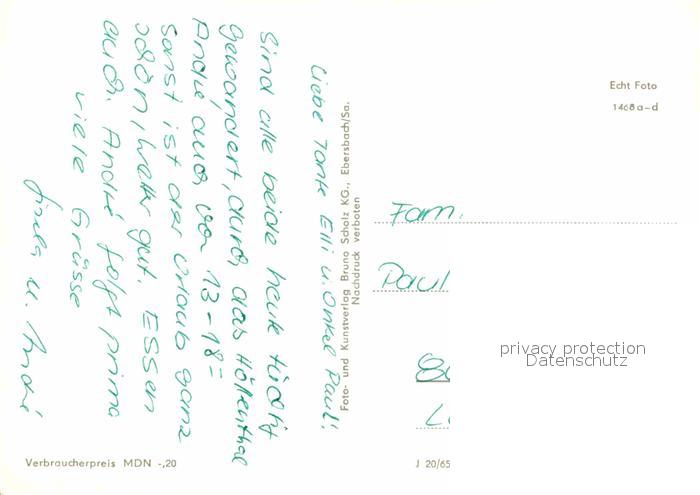 Liebe Tante Elli u. Onkel Paul!
Sind alle beide heute tüchtig
gewandert, durch das Höllenthal
André auch von 13-18=
sonst ist der Urlaub ganz
schön, Wetter gut. Essen
auch. André folgt prima
viele Grüsse
u. André
Foto- und Kunstverlag Bruno Scholz KG., Ebersbach/Sa.
Nachdruck verboten
Echt Foto
1468a-d
Fam.
Paul
privacy protection
Datenschutz
Verbraucherpreis MDN -,20
J 20/65